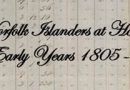 Norfolk Islanders at Ho
Early Years 1805 -